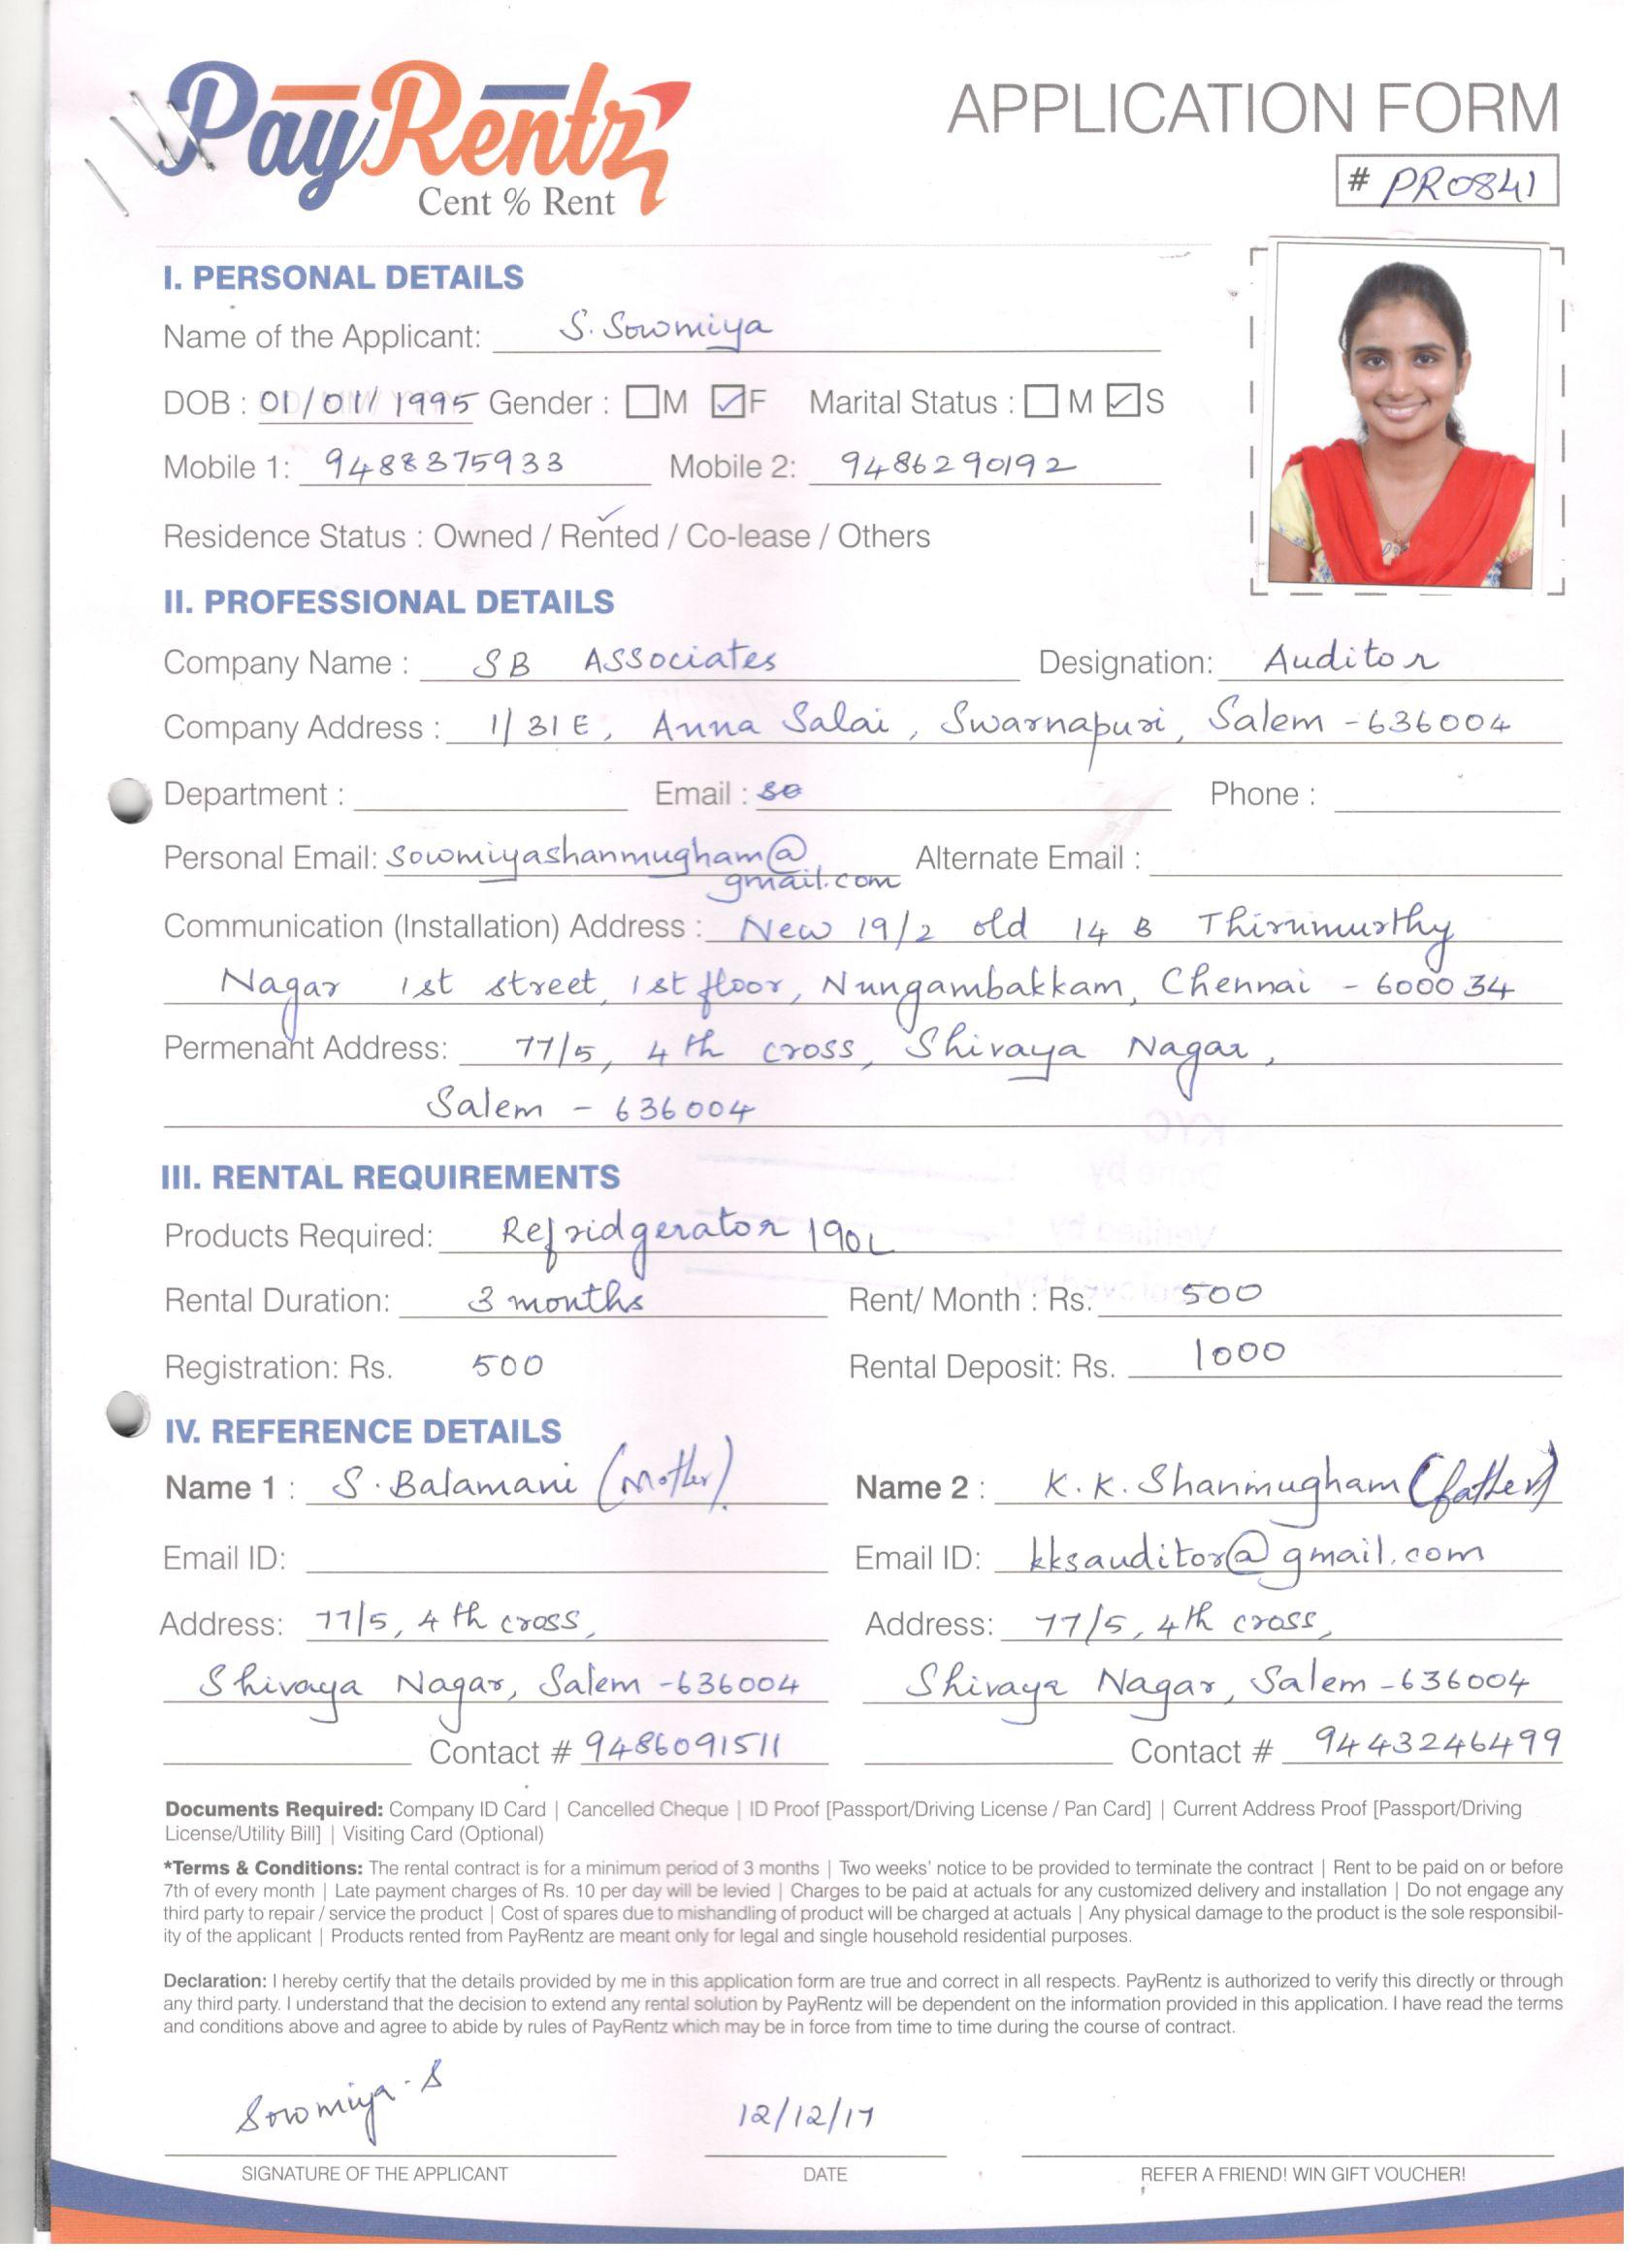 PayRentz
Cent % Rent
APPLICATION FORM
# PR0841
I. PERSONAL DETAILS
Name of the Applicant: S. Sowmiya
DOB : 01/01/1995 Gender : M F Marital Status : M S
Mobile 1: 9488375933 Mobile 2: 9486290192
Residence Status : Owned / Rented / Co-lease / Others
II. PROFESSIONAL DETAILS
Company Name : SB ASSociates Designation: Auditor
Company Address : 1/31E, Anna Salai, Swarnapuri, Salem - 636004
Department : Email : so Phone :
Personal Email: sowmiyashanmugham@
gmail.com Alternate Email :
Communication (Installation) Address : New 19/2 old 14 B Thirumurthy
Nagar 1st street, 1st floor, Nungambakkam, Chennai - 600034
Permenant Address: 77/5, 4th cross, Shivaya Nagar,
Salem - 636004
III. RENTAL REQUIREMENTS
Products Required: Refridgerator 190L
Rental Duration: 3 months Rent/ Month : Rs. 500
Registration: Rs. 500 Rental Deposit: Rs. 1000
IV. REFERENCE DETAILS
Name 1 : S. Balamani (Mother). Name 2 : K. K. Shanmugham (father)
Email ID: Email ID: kksauditor@gmail.com
Address: 77/5, 4th cross, Address: 77/5, 4th cross,
Shivaya Nagar, Salem - 636004 Shivaya Nagar, Salem - 636004
Contact # 9486091511 Contact # 9443246499
Documents Required: Company ID Card | Cancelled Cheque | ID Proof [Passport/Driving License / Pan Card] | Current Address Proof [Passport/Driving
License/Utility Bill] | Visiting Card (Optional)
*Terms & Conditions: The rental contract is for a minimum period of 3 months | Two weeks' notice to be provided to terminate the contract | Rent to be paid on or before
7th of every month | Late payment charges of Rs. 10 per day will be levied | Charges to be paid at actuals for any customized delivery and installation | Do not engage any
third party to repair / service the product | Cost of spares due to mishandling of product will be charged at actuals | Any physical damage to the product is the sole responsibil-
ity of the applicant | Products rented from PayRentz are meant only for legal and single household residential purposes.
Declaration: I hereby certify that the details provided by me in this application form are true and correct in all respects. PayRentz is authorized to verify this directly or through
any third party. I understand that the decision to extend any rental solution by PayRentz will be dependent on the information provided in this application. I have read the terms
and conditions above and agree to abide by rules of PayRentz which may be in force from time to time during the course of contract.
Sowmiya. S 12/12/17
SIGNATURE OF THE APPLICANT DATE REFER A FRIEND! WIN GIFT VOUCHER!